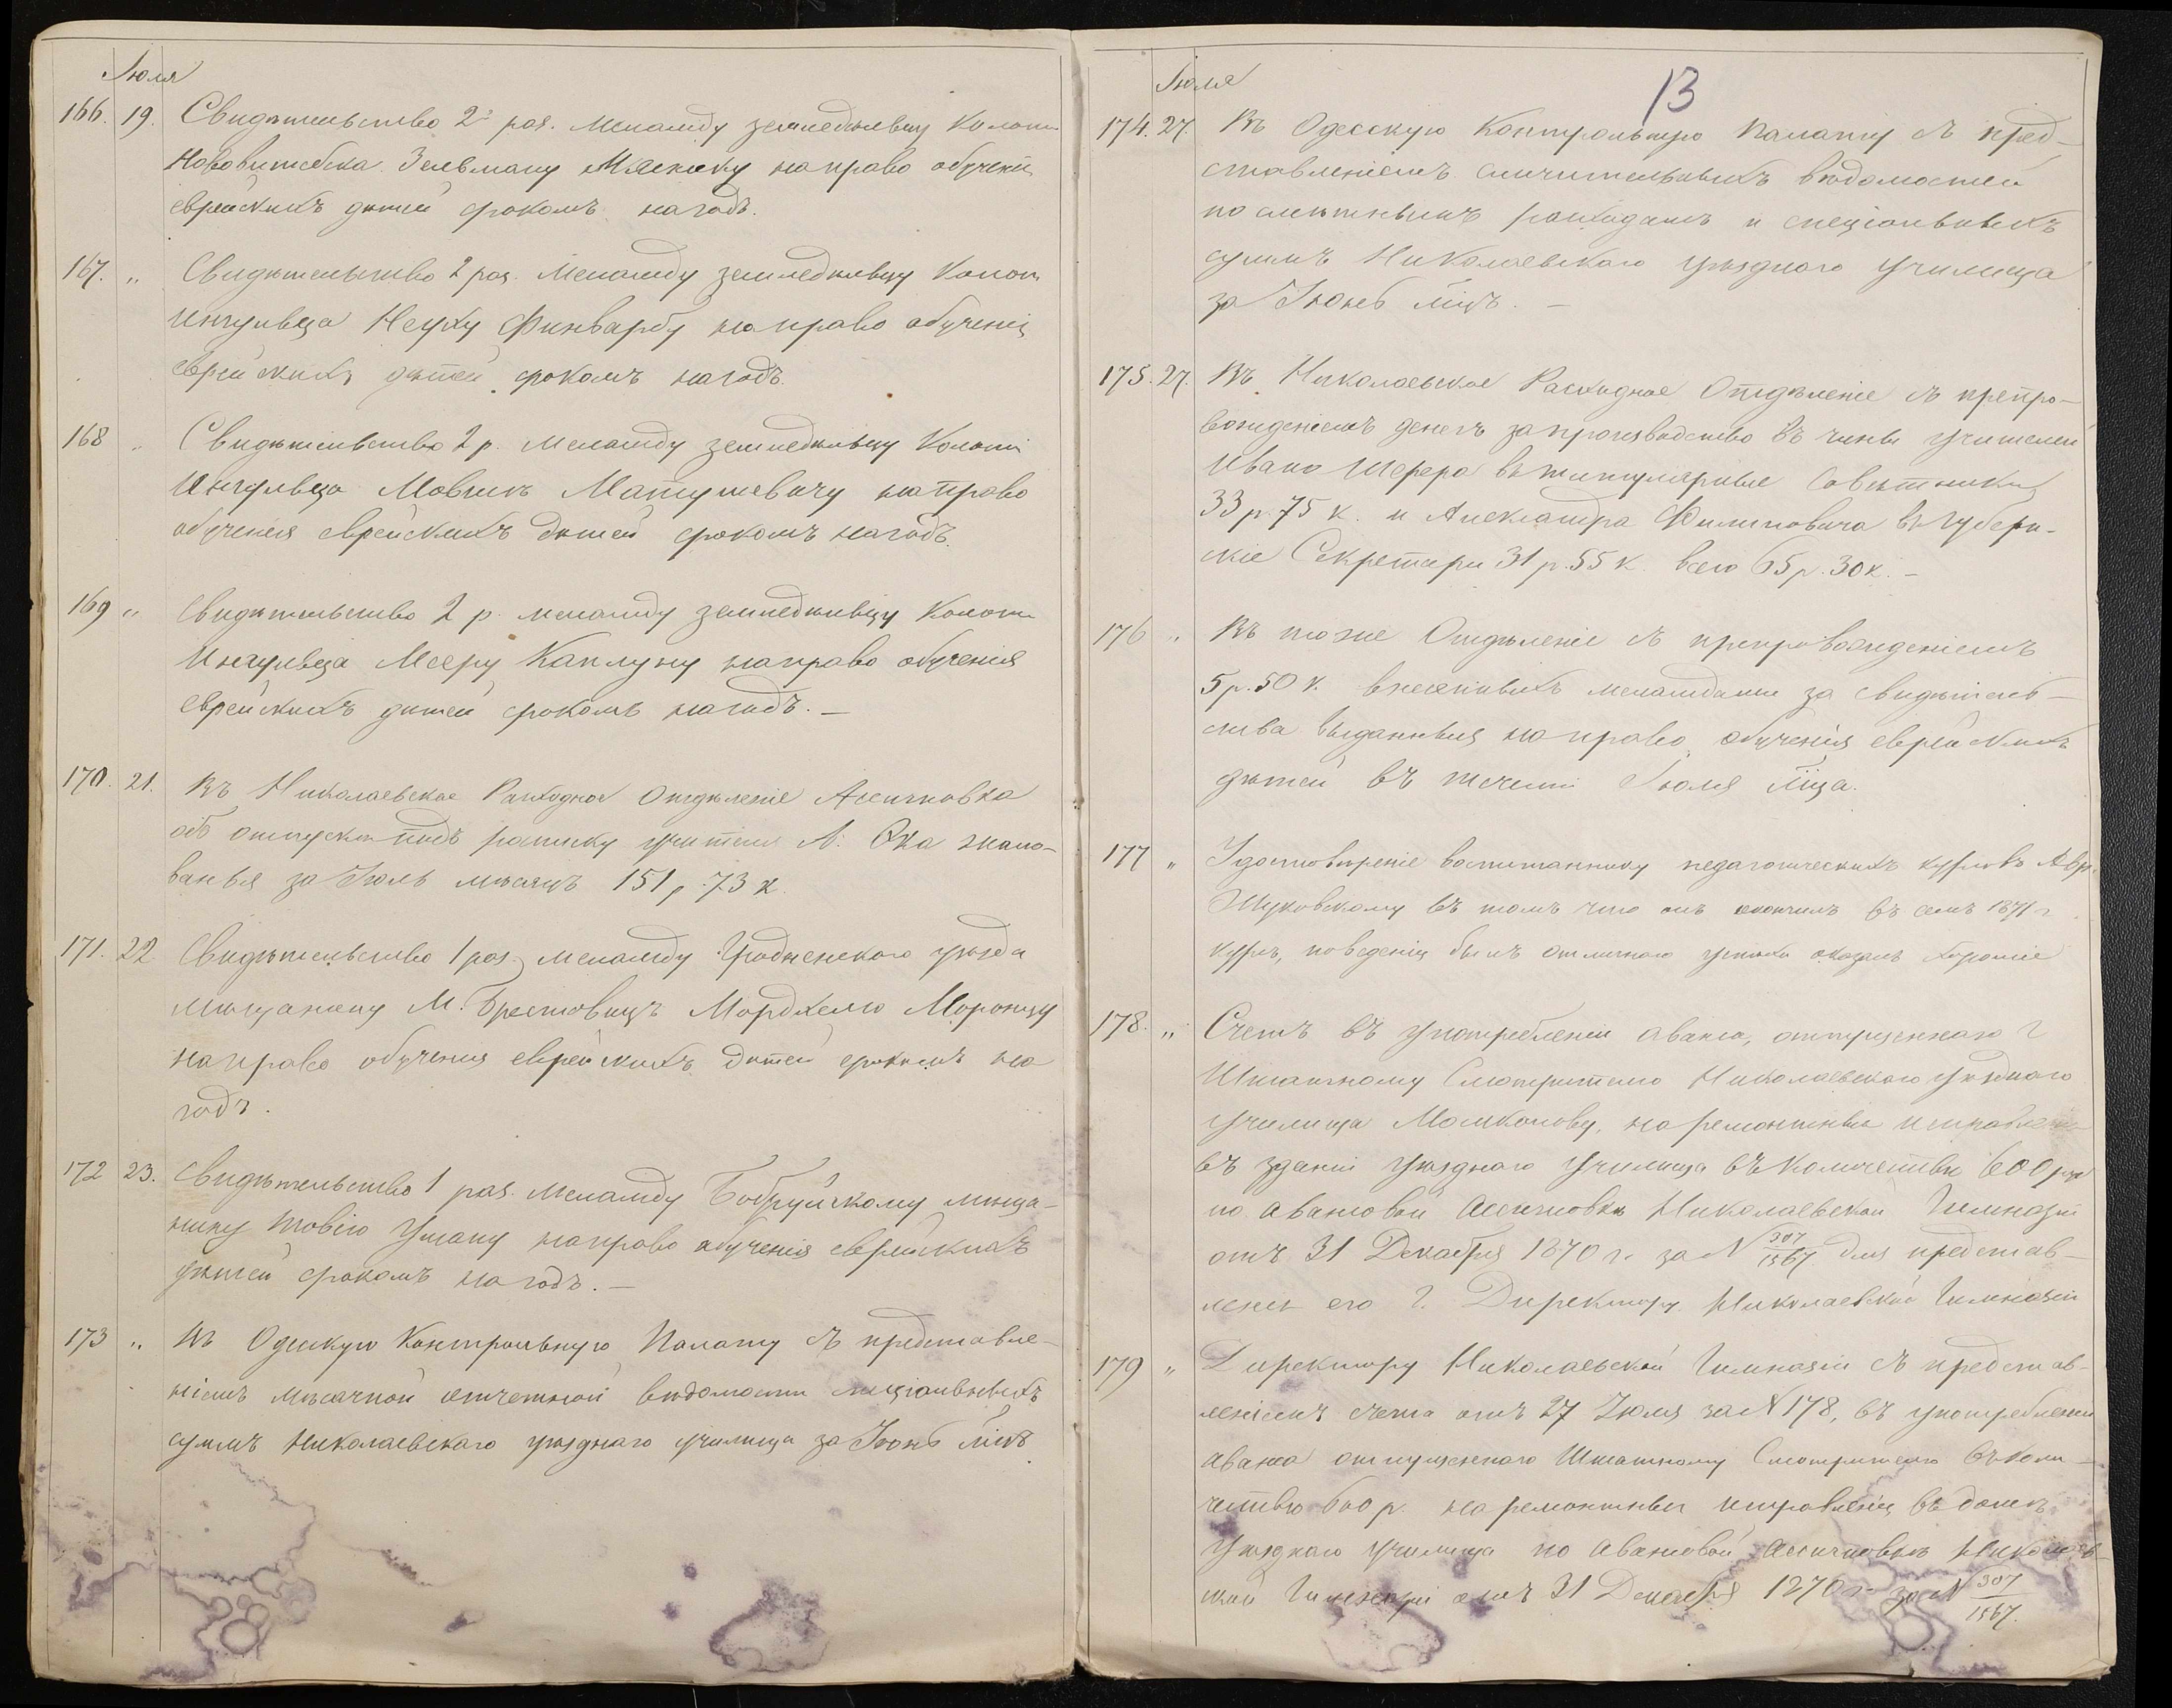 Іюля
166. 19. Свидѣтельство 2 раз. Меламду земледѣльцу Колоніи
Нововитебска Зельману на право обученія
еврейскихъ дѣтей срокомъ на годъ.
167. „ Свидѣтельство 2 раз. Меламду земледѣльцу Колон.
Ингульца Неуху Финварбу на право обученія
еврейскихъ дѣтей срокомъ на годъ.
168 „ Свидѣтельство 2 р. Меламду земледѣльцу Колоніи
Ингульца Мовшѣ Матушевичу на право
обученія еврейскихъ дѣтей срокомъ на годъ.
169 „ Свидѣтельство 2 р. меламду земледѣльцу Колоніи
Ингульца Мееру Каплуну на право обученія
еврейскихъ дѣтей срокомъ на годъ. —
170. 21. Въ Николаевское Расходное Отдѣленіе Ассигновка
объ отпускѣ подъ росписку учителя Л. Ока жало-
ванья за Іюль мѣсяцъ 151 р. 73 к.
171. 22 Свидѣтельство 1 раз. меламду Гродненскаго уѣзда
мѣщанину М. Брестовицъ Мордхелю
на право обученія еврейскихъ дѣтей срокомъ на
годъ.
172 23. Свидѣтельство 1 раз. Меламду Бобруйскому мѣща-
нину Товію Уману на право обученія еврейскихъ
дѣтей срокомъ на годъ. —
173 „ Въ Одесскую Контрольную Палату съ представле-
ніемъ мѣсячной отчетной вѣдомости спеціальныхъ
суммъ Николаевскаго уѣзднаго училища за Іюнь мѣцъ
13
Іюля
174. 27. Въ Одесскую Контрольную Палату съ пред-
ставленіемъ сличительныхъ вѣдомостей
по смѣтнымъ расходамъ и спеціальныхъ
суммъ Николаевскаго уѣзднаго училища
за Іюнь мцъ. —
175. 27. Въ Николаевское Расходное Отдѣленіе съ препро-
вожденіемъ денегъ за производство въ чины учителей
Ивана Шефера въ титулярные Совѣтники
33 р. 75 к. и Александра Филиповича въ Губерн-
скіе Секретари 31 р. 55 к. всего 65 р. 30 к. —
176 „ Въ тоже Отдѣленіе съ препровожденіемъ
5 р. 50 к. внесенныхъ меламдами за свидѣтель-
ства выданныя на право обученія еврейскихъ
дѣтей въ теченіи Іюля мца.
177 „ Удостовѣреніе воспитаннику педагогическихъ курсовъ Авр.
Жуковскому въ томъ что онъ окончилъ въ семъ 1871 г.
курсъ, поведенія былъ отличнаго успѣхи оказалъ хорошіе
178. „ Счетъ въ употребленіи аванса, отпущеннаго Г
Штатному Смотрителю Николаевскаго уѣзднаго
училища на ремонтныя исправленія
въ зданіи уѣзднаго училища въ количествѣ 600 р.
по авансовой Ассигновкѣ Николаевской Гимназіи
отъ 31 Декабря 1870 г. за N 307/1567 для представ-
ленія его Г. Директору Николаевской Гимназіи
179 „ Директору Николаевской Гимназіи съ представ-
леніемъ счета отъ 27 Іюля за N 178, въ употребленіи
аванса отпущеннаго Штатному Смотрителю въ коли-
чествѣ 600 р. на ремонтныя исправленія въ домѣ
уѣзднаго училища по авансовой Ассигновкѣ Николаев-
ской Гимназіи отъ 31 Декабря 1870 г. за N 307/1567.